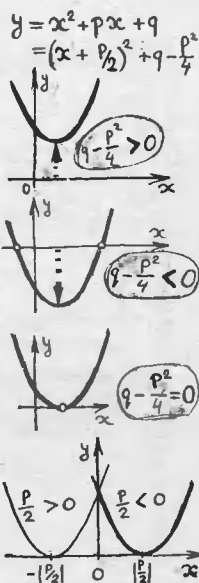 y = x² + px + q
= (x + P/2)² + q - P²/4
y
q - P²/4 > 0
0
x
y
x
q - P²/4 < 0
y
q - P²/4 = 0
x
y
P/2 > 0
P/2 < 0
-|P/2|
0
|P/2|
x